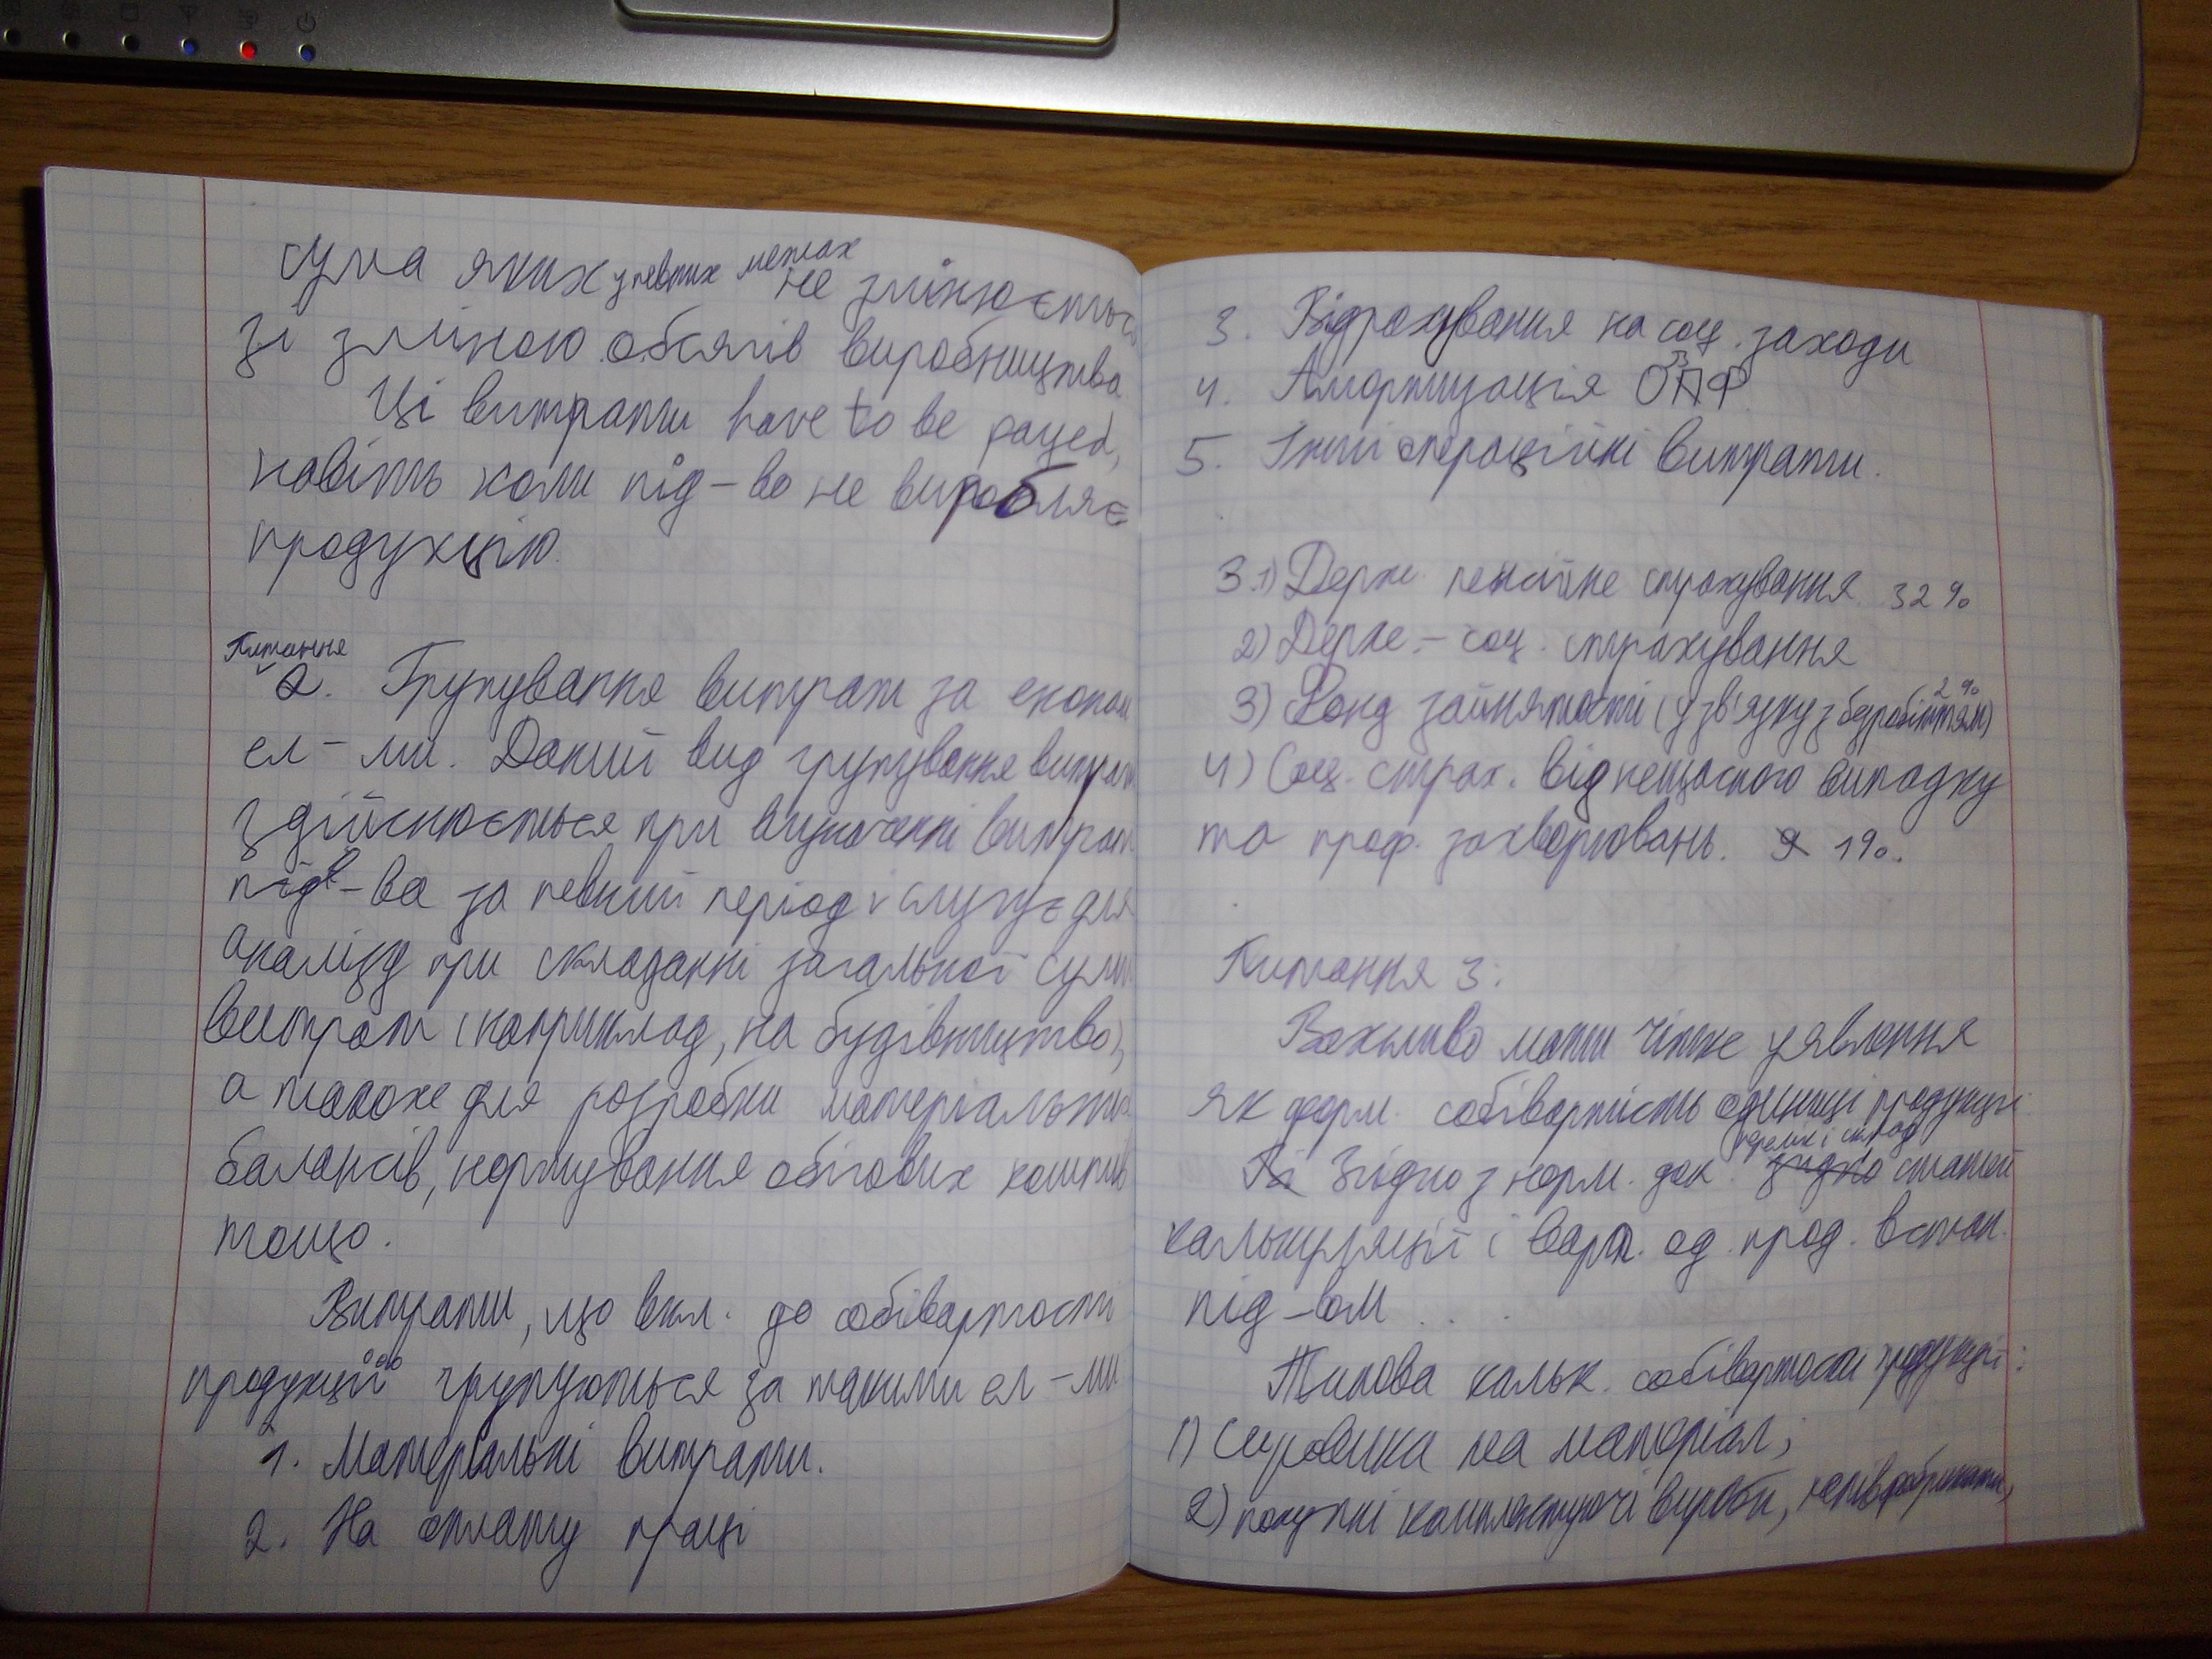 сума яких у певних межах не змінюється
зі зміною обсягів виробництва.
Ці витрати have to be payed,
навіть коли під-во не виробляє
продукцію.
Питання
2. Групування витрат за економ
ел-ми. Даний вид групування витрат
здійснюється при визначенні витрат
під-ва за певний період і служує для
аналізу при складанні загальної суми
витрат (наприклад, на будівництво),
а також для розробки матеріальних
балансів, нормування обігових коштів
тощо.
Витрати, що вкл. до собівартості
продукції групуються за такими ел-ми
1. Матеріальні витрати.
2. На оплату праці
3. Відрахування на соц. заходи
4. Амортизація ОВПФ
5. Інші операційні витрати.
3.1) Держ. пенсійне страхування 32%
2) Держ. - соц. страхування
3) Фонд зайнятості (у зв'язку з безробіттям) 2%
4) Соц. страх. від нещасного випадку
та проф. захворювань. 1%.
Питання 3:
Важливо мати чітке уявлення
як форм. собівартість одиниці продукції
перелік і склад
Згідно з норм. док. статей
калькуляції і варт. од. прод. встан.
під-вом ...
Типова кальк. собівартості продукції:
1) Сировина та матеріал;
2) покупні комплектуючі вироби, напівфабрикати,